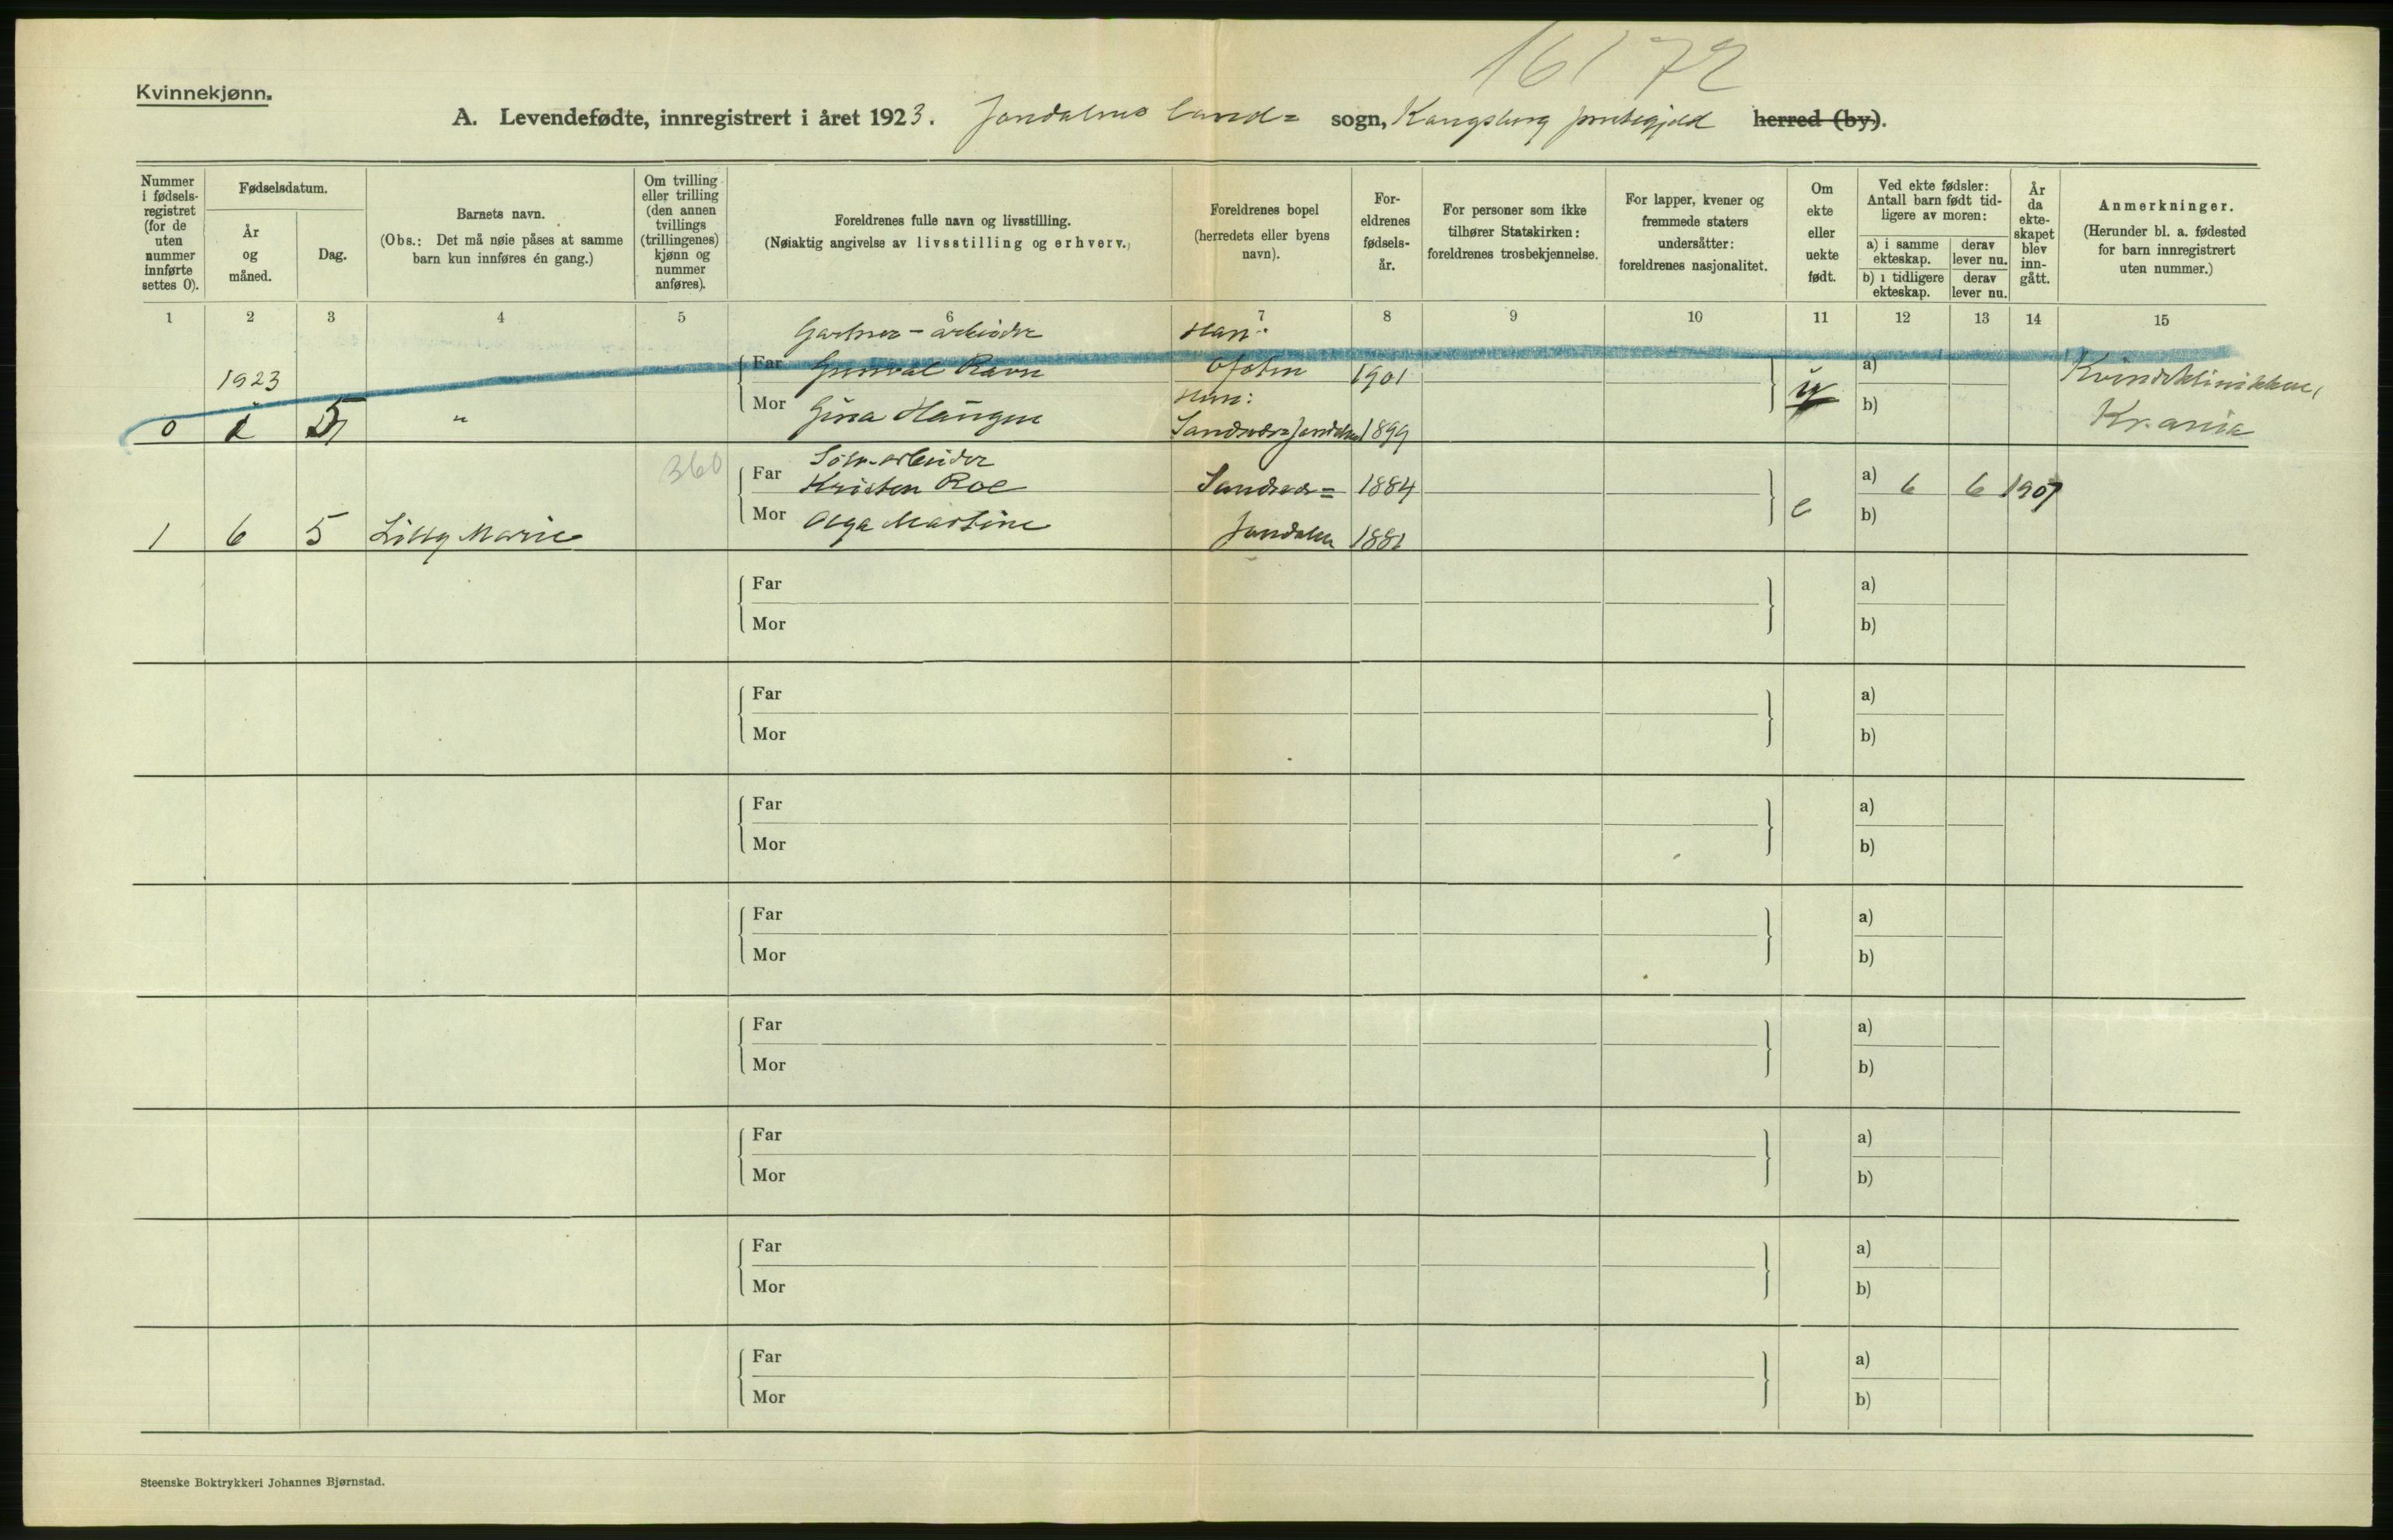 16172
Kvinnekjønn.
A. Levendefødte, innregistrert i året 1923. Jondalens land= sogn, Kongsberg prestegjeld herred (by).
Nummer i fødsels-registret (for de uten nummer innførte settes 0).
Fødselsdatum.
År og måned.
Dag.
Barnets navn.
(Obs.: Det må nøie påses at samme barn kun innføres én gang.)
Om tvilling eller trilling (den annen tvillings (trillingenes) kjønn og nummer anføres).
Foreldrenes fulle navn og livsstilling.
(Nøiaktig angivelse av livsstilling og erhverv.)
Foreldrenes bopel (herredets eller byens navn).
For-eldrenes fødsels-år.
For personer som ikke tilhører Statskirken: foreldrenes trosbekjennelse.
For lapper, kvener og fremmede staters undersåtter: foreldrenes nasjonalitet.
Om ekte eller uekte født.
Ved ekte fødsler: Antall barn født tid-ligere av moren:
a) i samme ekteskap.
derav lever nu.
b) i tidligere ekteskap.
derav lever nu.
År da ekte-skapet blev inn-gått.
Anmerkninger.
(Herunder bl. a. fødested for barn innregistrert uten nummer.)
1 2 3 4 5 6 7 8 9 10 11 12 13 14 15
Gartner-arbeider Han:
1923 Far Gunval Ravn Ofoten 1901 a) Kvindeklinikken,
Hun:
0 1 5 " Mor Gina Haugen Sandsvær=Jondalen 1899 u b) Kr.ania
360 Sølv.arbeider
Far Kristen Roe Sandsvær= 1884 a) 6 6 1907
1 6 5 Lilly Marie Mor Olga Martine Jondalen 1881 e b)
Far a)
Mor b)
Far a)
Mor b)
Far a)
Mor b)
Far a)
Mor b)
Far a)
Mor b)
Far a)
Mor b)
Far a)
Mor b)
Far a)
Mor b)
Steenske Boktrykkeri Johannes Bjørnstad.